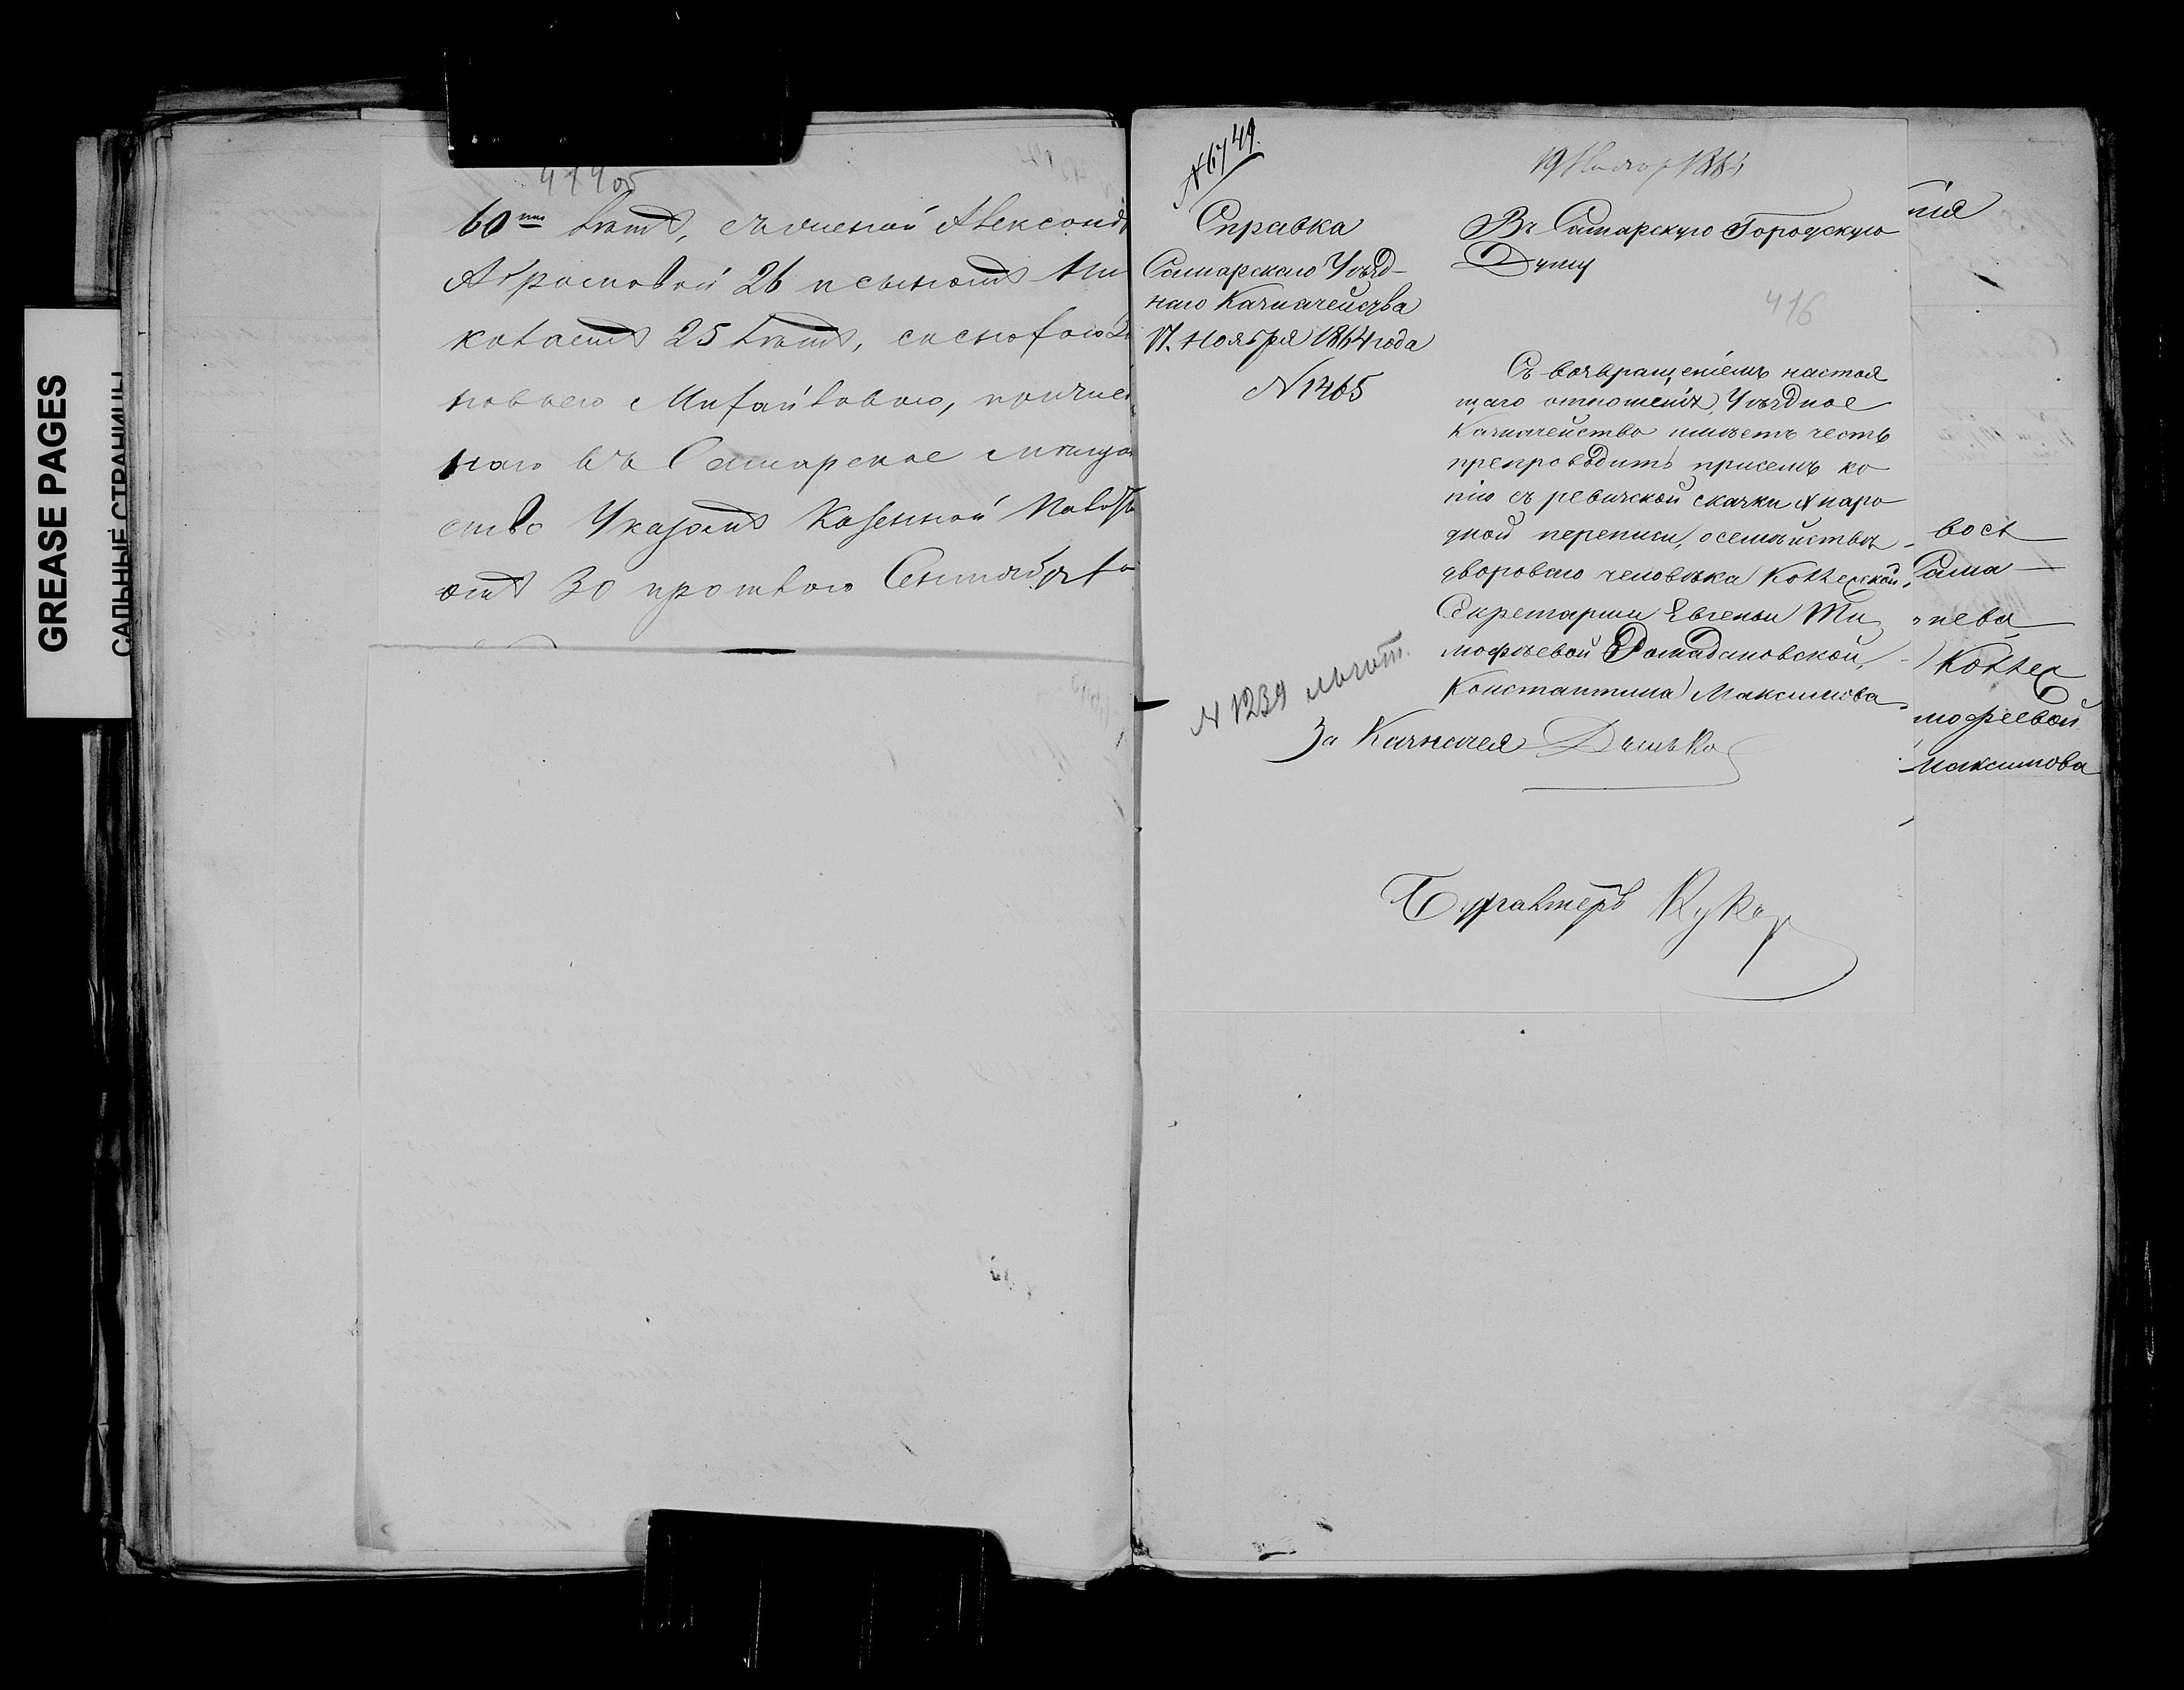 GREASE PAGES
САЛЬНЫЕ СТРАНИЦЫ
60ти летъ, съ женой Александ
Абрамовой 26 и сыномъ Ни
колаемъ 25 летъ, со снохою
новьею Михайловою, причис
наго въ Самарское мѣщан
ство Указомъ Казенной Палаты
отъ 30 прошлаго Сентября
№ 6749.
Справка
Самарскаго Уѣзд-
наго Казначейства
17. Ноября 1864 года
N 1465
N 1239
19 Ноябр 1864
Въ Самарскую Городскую
Думу
416
Съ возвращеніемъ настоя
щаго отношенія, Уѣздное
Казначейство имѣетъ честь
препроводить присемъ ко
пію съ ревизской сказки X наро
дной переписи, о семействѣ
двороваго человѣка Коллежской
Секретарши Евгеньи Ти
мофѣевой Ромадановской,
Константина Максимова
За Казначея
Бухгалтеръ
нія
вост
Сама
нева
Коллеж
мофеевой
Максимова